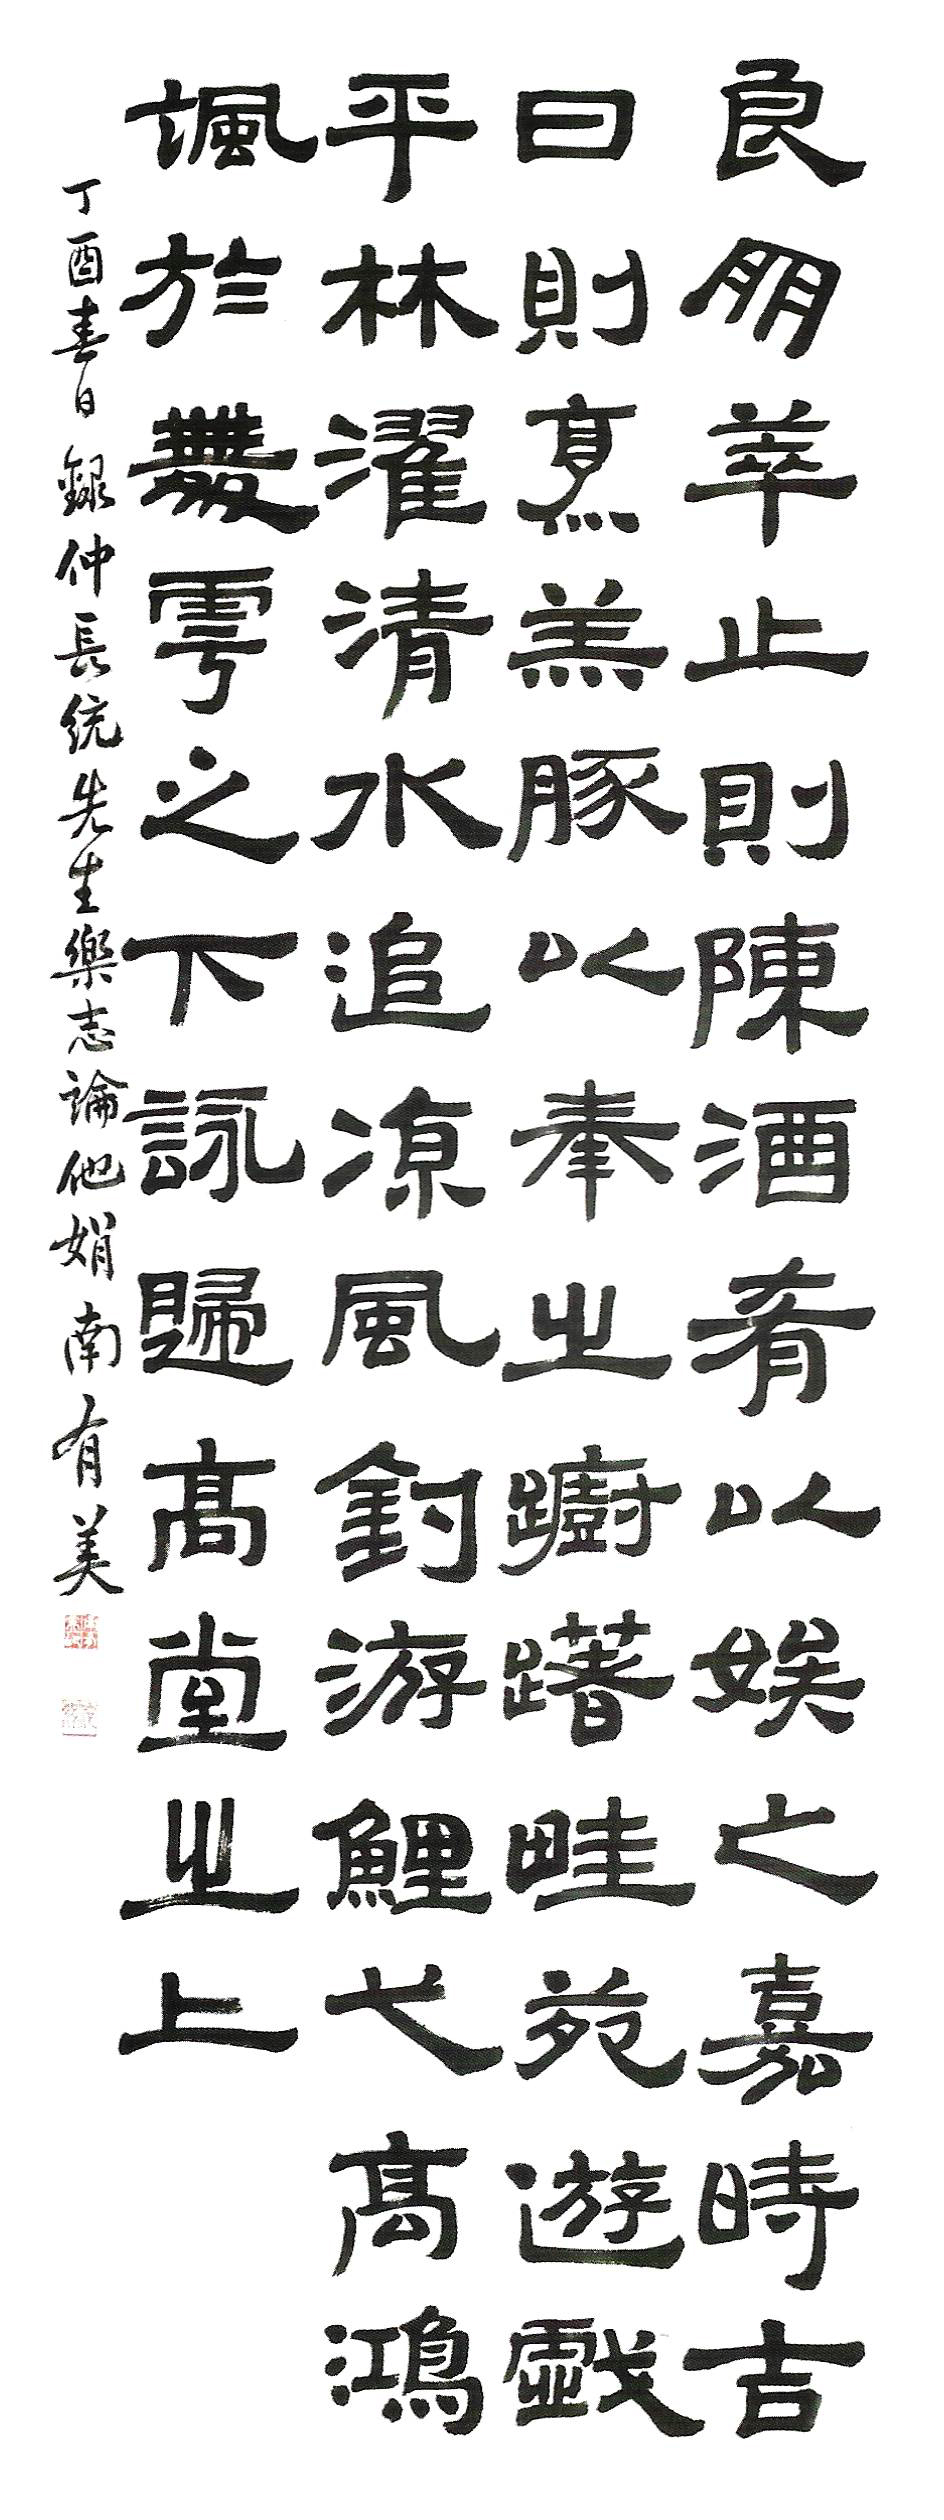 良朋萃止則陳酒肴以娭之嘉時吉
日則烹羔豚以奉之躕躇畦苑遊戲
平林濯清水追凉風釣游鯉弋高鴻
諷於舞雩之下詠歸高堂之上
丁酉春日 錄仲長統先生樂志論 他娟 南有美